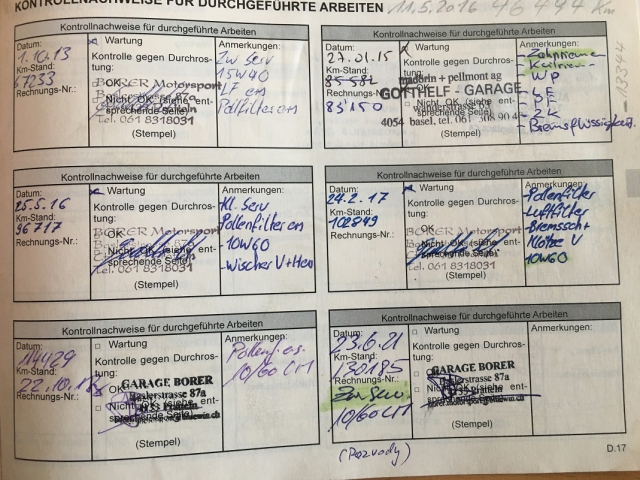 KONTROLLNACHWEISE FÜR DURCHGEFÜHRTE ARBEITEN 11.5.2016 96 494 Km
Kontrollnachweise für durchgeführte Arbeiten
Datum:
1.10.13
Km-Stand:
67233
Rechnungs-Nr.:
Wartung
Kontrolle gegen Durchros-
tung:
OK
Nicht OK (siehe ent-
sprechende Seite)
BORER Motorsport
Tel. 061 8318031
(Stempel)
Anmerkungen:
Zw Serv
15W40
LF ern
Pollfilter ern
Kontrollnachweise für durchgeführte Arbeiten
Datum:
27.01.15
Km-Stand:
85 582
Rechnungs-Nr.:
83'150
Wartung
Kontrolle gegen Durchros-
tung:
madörin + pellmont ag
GOTTHELF - GARAGE
OK
Nicht OK (siehe ent-
sprechende Seite)
4054 basel, tel. 061 308 90 4
(Stempel)
Anmerkungen:
- Zahnriemen
- Keilriemen
- WP
- LF
- PF
- ZK
- Bremsflüssigkeit
- 13344
Kontrollnachweise für durchgeführte Arbeiten
Datum:
25.5.16
Km-Stand:
96717
Rechnungs-Nr.:
Wartung
Kontrolle gegen Durchros-
tung:
OK
BORER Motorsport
Nicht OK (siehe ent-
sprechende Seite)
Tel. 061 8318031
(Stempel)
Anmerkungen:
- Kl. Serv
Pollenfilter ern
- 10W60
- Wischer V+H ern
Kontrollnachweise für durchgeführte Arbeiten
Datum:
24.2.17
Km-Stand:
102849
Rechnungs-Nr.:
Wartung
Kontrolle gegen Durchros-
tung:
OK
BORER Motorsport
Nicht OK (siehe ent-
sprechende Seite)
Tel. 061 8318031
(Stempel)
Anmerkungen:
- Pollenfilter
- Luftfilter
- Bremssch +
Klötze V
10W60
Kontrollnachweise für durchgeführte Arbeiten
Datum:
114429
Km-Stand:
22.10.18
Rechnungs-Nr.:
Wartung
Kontrolle gegen Durchros-
tung:
GARAGE BORER
OK
Baslerstrasse 87a
Nicht OK (siehe ent-
4133 Pratteln
sprechende Seite)
(Stempel)
Anmerkungen:
10/60 LM
Kontrollnachweise für durchgeführte Arbeiten
Datum:
23.6.21
Km-Stand:
130185
Rechnungs-Nr.:
Zw Serv
10/60 LM
Wartung
Kontrolle gegen Durchros-
tung:
GARAGE BORER
OK
Baslerstrasse 87a
Nicht OK (siehe ent-
sprechende Seite)
(Stempel)
Anmerkungen:
(Rozvody)
D.17